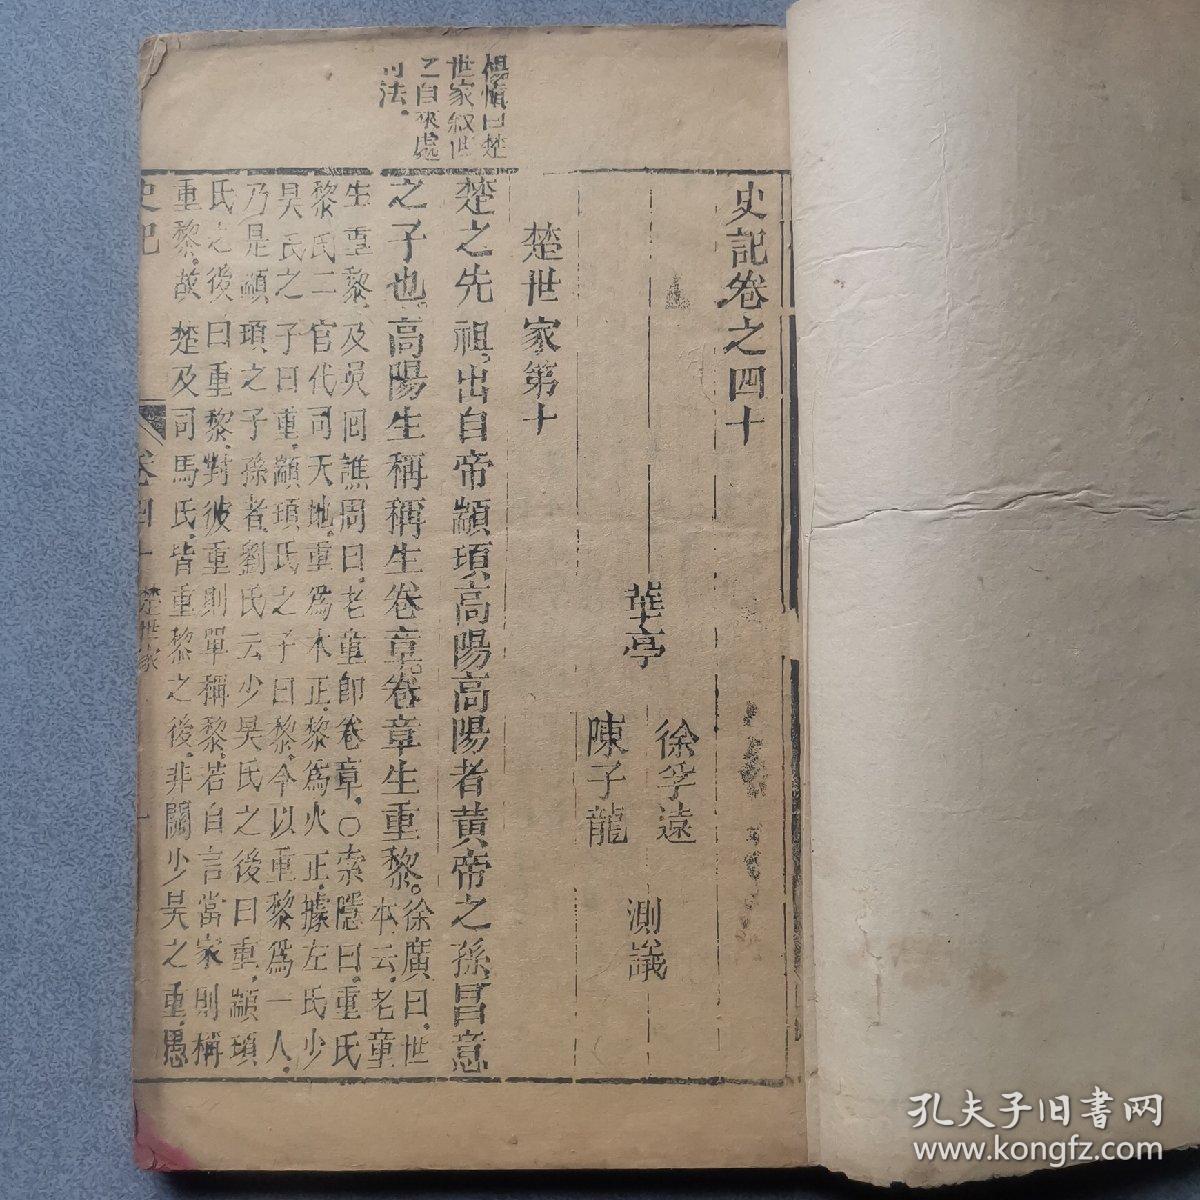 史記卷之四十
華亭
徐孚遠
陳子龍
測議
楚世家第十
楊慎曰楚
世家叙世
之自來處
可法。
楚之先祖。出自帝顓頊高陽高陽者黃帝之孫昌意
之子也。高陽生稱稱生卷章卷章生重黎。
徐廣曰。世
本云。老童
生重黎及吳回譙周曰。老童即卷章。○索隱曰。重氏
黎氏二官代司天地。重爲木正。黎爲火正。據左氏少
昊氏之子曰重。顓頊氏之子曰黎。今以重黎爲一人。
乃是顓頊之子孫者。劉氏云少昊氏之後曰重。顓頊
氏之後曰重黎。對彼重則單稱黎。若自言當家則稱
重黎。故楚及司馬氏。皆重黎之後。非關少昊之重。愚
史記
卷四十
楚世家
一
孔夫子旧书网
www.kongfz.com